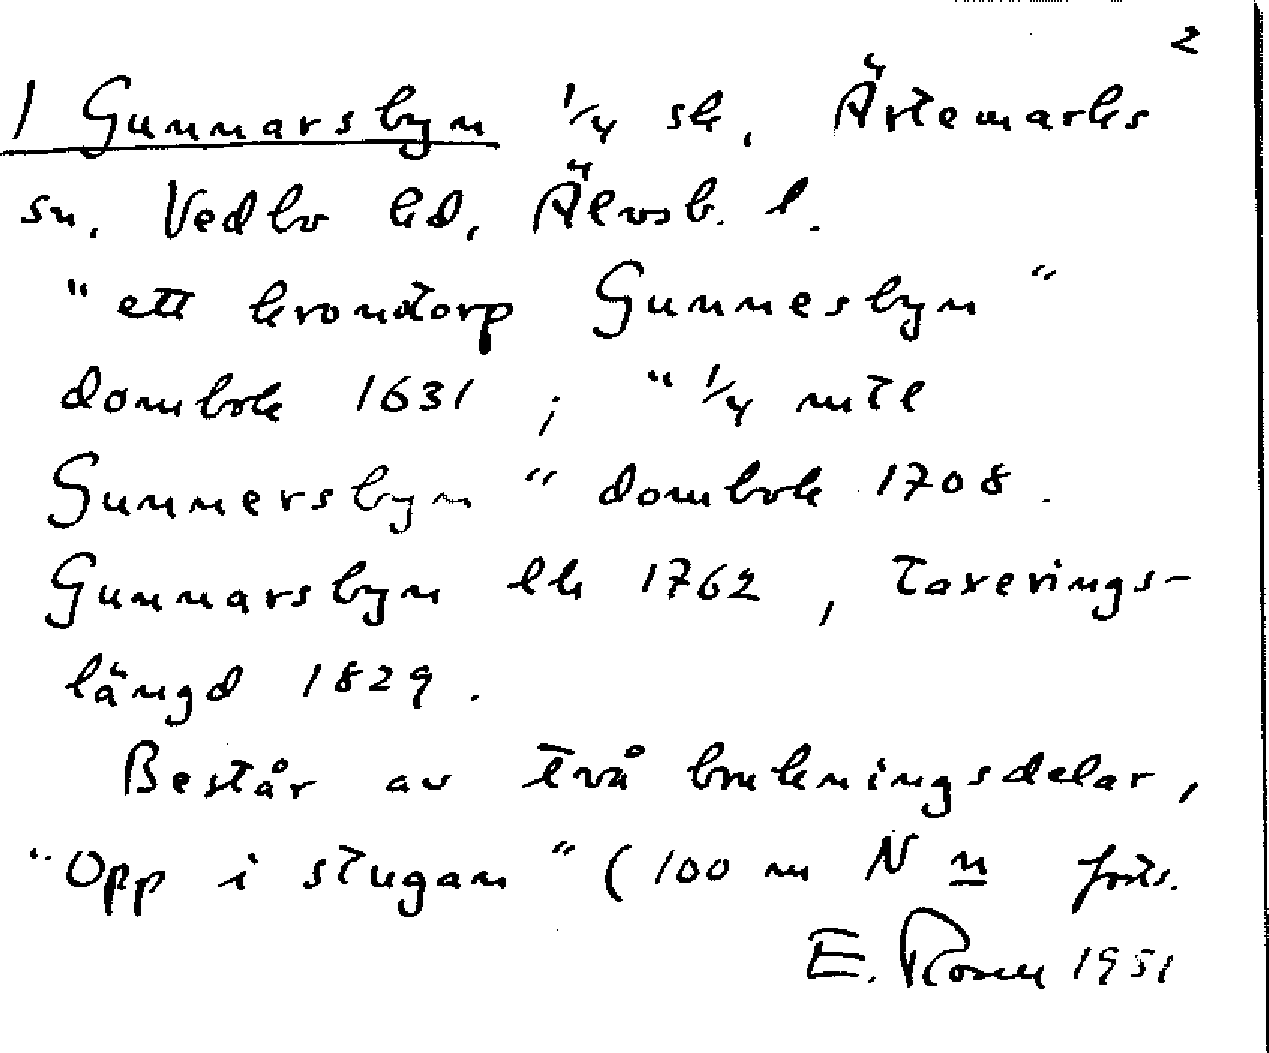 2
1 Gunnarsbyn 1/4 sk, Ärtemarks
sn. Vedbo hd, Älvsb. l.
"ett krondtorp Gunnesbyn"
dombok 1631 ; "1/4 mtl
Gunnersbyn" dombok 1708.
Gunnarsbyn lk 1762, taxerings-
längd 1829.
Består av två brukningsdelar,
"Opp i stugan" (100 m N n forts.
E. Rosell 1951